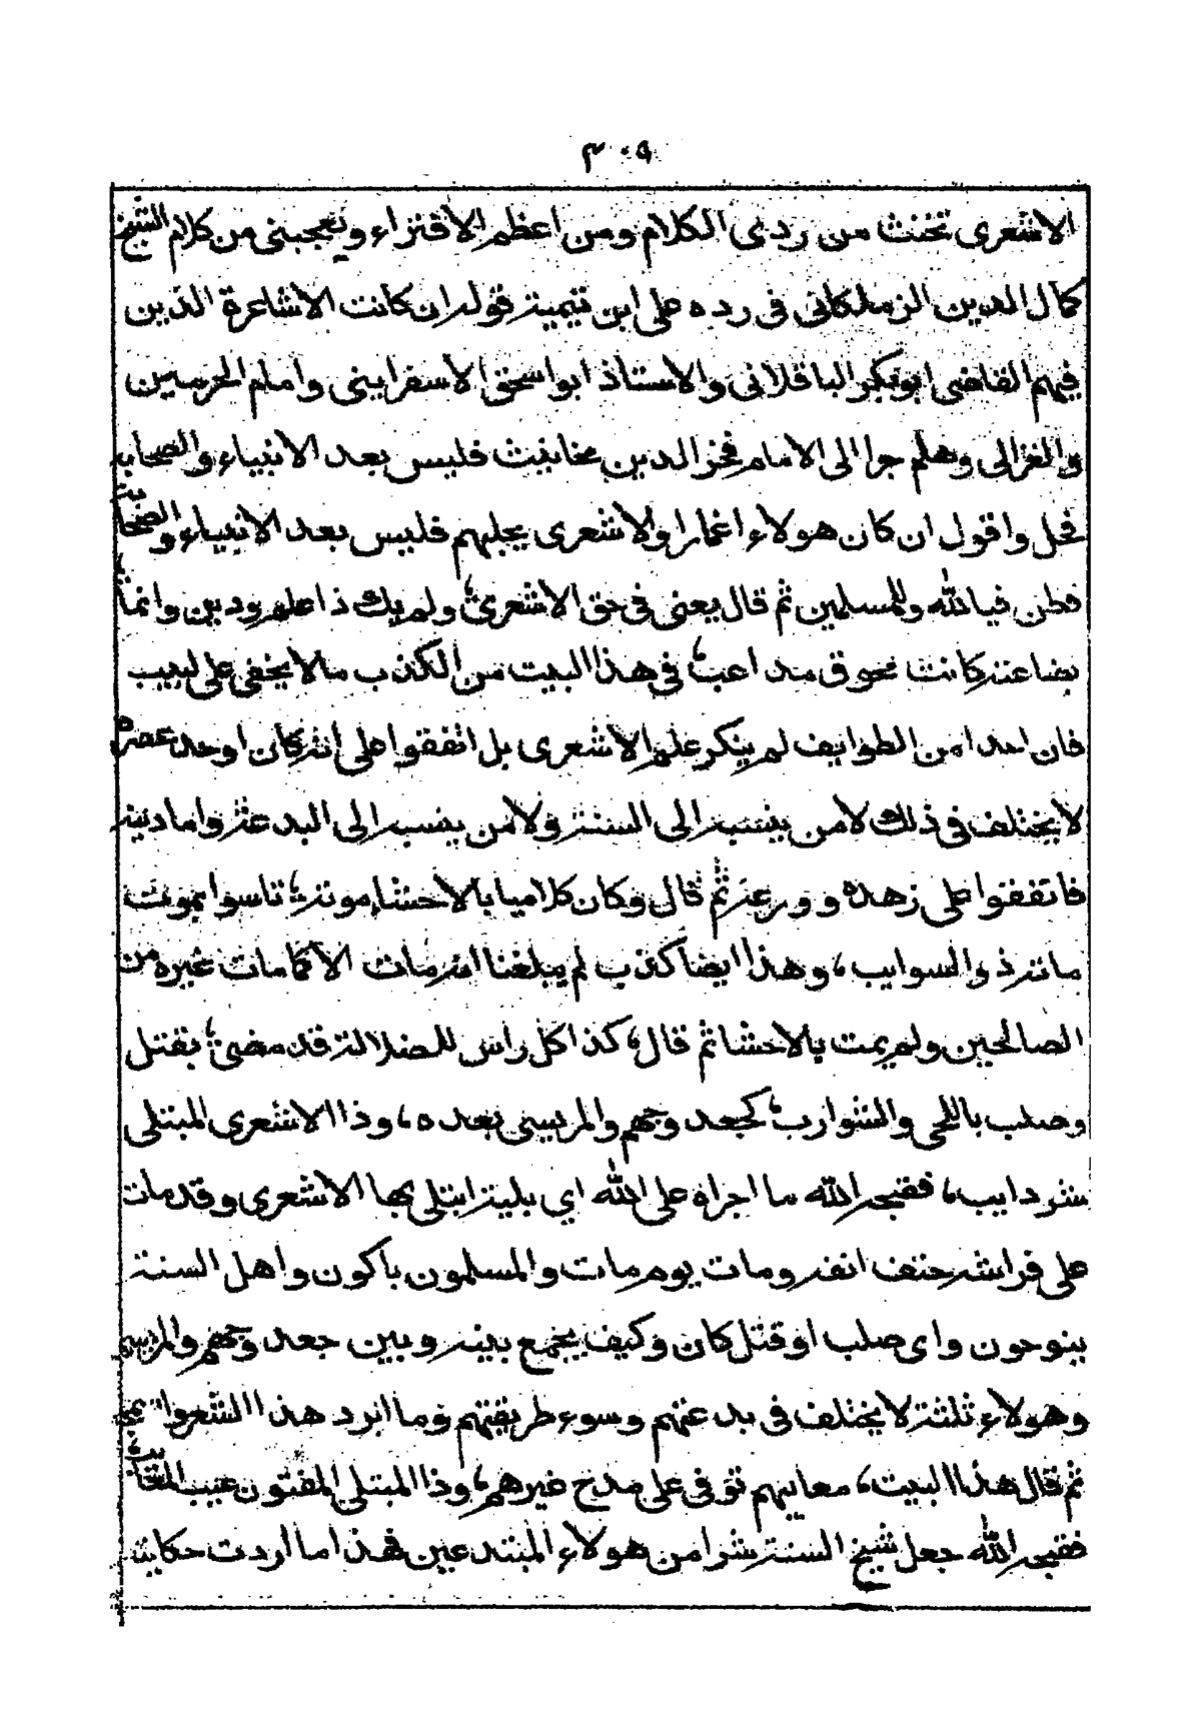 ٣٠٩
الاشعرى تخنث من ردى الكلام ومن اعظم الافتراء ويعجبنى من كلام الشيخ
كمال الدين الزملكانى فى رده على ابن تيمية قوله ان كانت الاشاعرة الذين
فيهم القاضى ابو بكر الباقلانى والاستاذ ابو اسحق الاسفراينى وامام الحرمين
والغزالى وهلم جرا الى الامام فخر الدين مخانيث فليس بعد الانبياء والصحابه
فحل واقول ان كان هولاء اغمارا والاشعرى يجلبهم فليس بعد الانبياء والصحابة
فطن فيالله وللمسلمين ثم قال يعنى فى حق الاشعرى؛ ولم يك ذا علم ودين وانما؛
بضاعته كانت مخوق مداعب؛ فى هذا البيت من الكذب ما لا يخفى على لبيب
فان احدا من الطوايف لم ينكر علم الاشعرى بل اتفقوا على انه كان اوحد عصره
لا يختلف فى ذلك لا من ينسبه الى السنة ولا من ينسبه الى البدعة واما دينه
فاتفقوا على زهده وورعه ثم قال وكان كلاميا بالاحشاء موته؛ تاسوا بموت
ماته ذو السوايب، وهذا ايضا كذب لم يبلغنا انه مات الا كما مات غيره من
الصالحين ولم يمت بالاحشا ثم قال؛ كذا كل راس للضلالة قد مضى؛ بقتل
وصلب باللحى والشوارب؛ كجعد وجهم والمريسى بعده، وذا الاشعرى المبتلى
شر دايب، فقبحه الله ما اجراه على الله اي بلية ابتلى بها الاشعرى وقد مات
على فراشه حتف انفه ومات يوم مات والمسلمون باكون واهل السنة
ينوحون واى صلب او قتل كان وكيف يجمع بينه وبين جعد وجهم والمريسى
وهولاء ثلثة لا يختلف فى بدعتهم وسوء طريقتهم وما ابرد هذا الشعر وا
ثم قال هذا البيت، معايبهم توفى على مدح غيرهم، وذا المبتلى المفتون عيب المقايب؛
فقبحه الله جعل شيخ السنة شرا من هولاء المبتدعين فهذا ما اردت حكايته